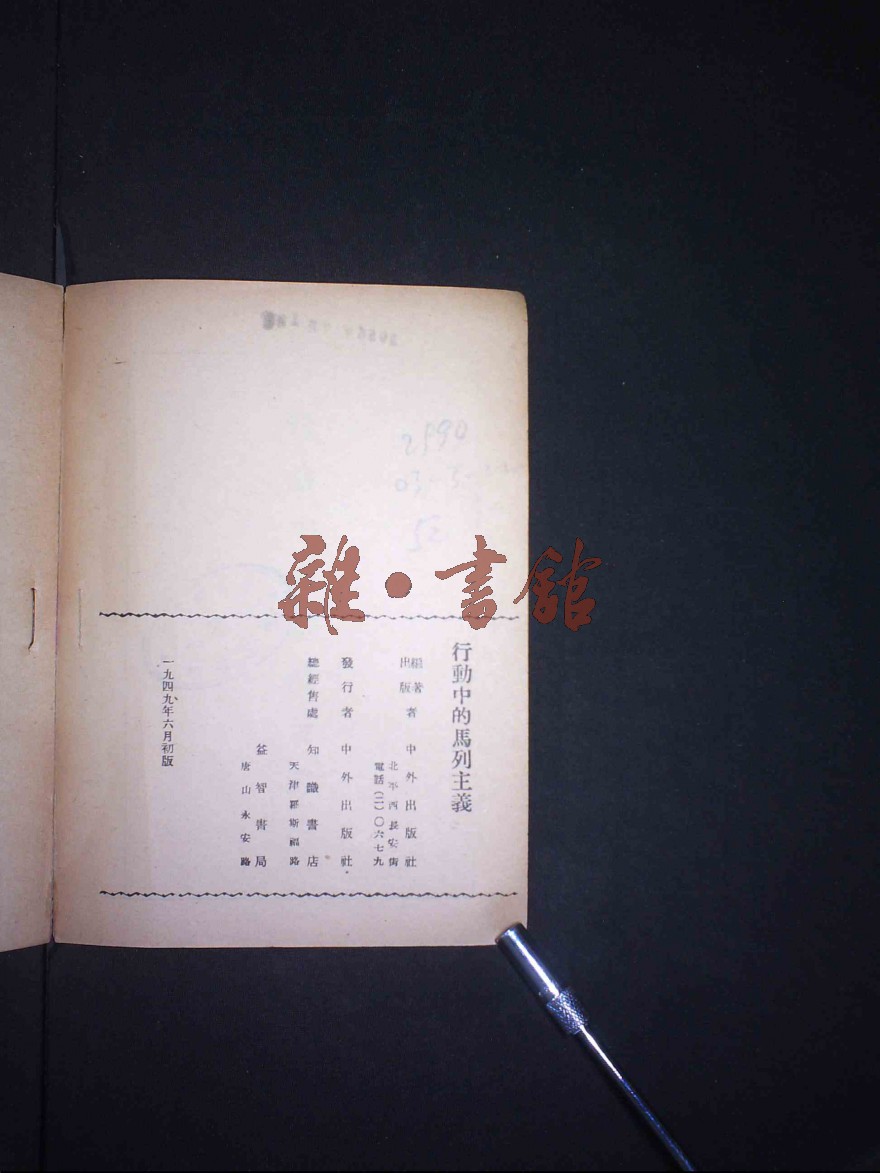 2590
雜·書館
行動中的馬列主義
編著者
出版者
中外出版社
北平西長安街
電話(二)〇六七九
發行者 中外出版社
總經售處 知識書店
天津羅斯福路
益智書局
唐山永安路
一九四九年六月初版